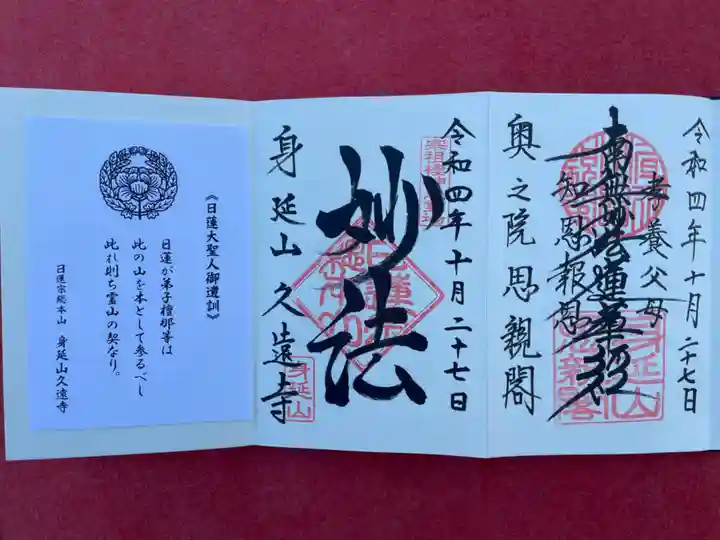 令和四年十月二十七日
孝養父母
南無妙法蓮華経
知恩報恩
奥之院思親閣
令和四年十月二十七日
妙法
身延山
身延山久遠寺
《日蓮大聖人御遺訓》
日蓮が弟子檀那等は
此の山を本として参るべし
此れ則ち霊山の契なり。
日蓮宗総本山 身延山久遠寺